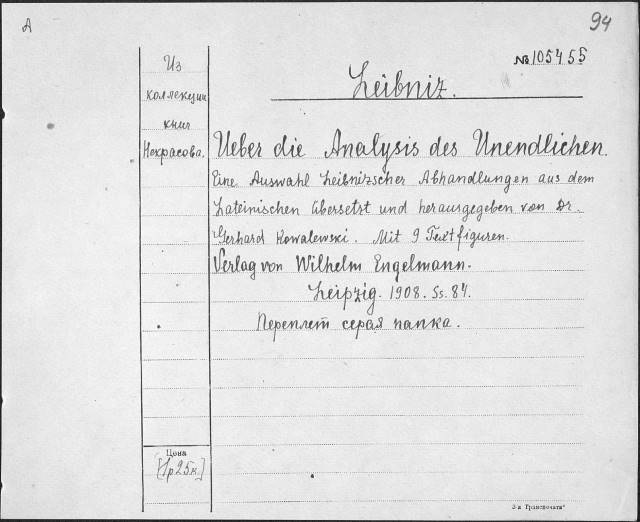 А
94
№ 105455
Из
коллекции
книг
Некрасова.
Leibniz.
Ueber die Analysis des Unendlichen.
Eine Auswahl Leibnizscher Abhandlungen aus dem
Lateinischen übersetzt und herausgegeben von Dr.
Gerhard Kowalewski. Mit 9 Textfiguren.
Verlag von Wilhelm Engelmann.
Leipzig. 1908. Ss. 84.
Переплет серая папка.
Цена
[1р 25к.]
3-я Транспечати"